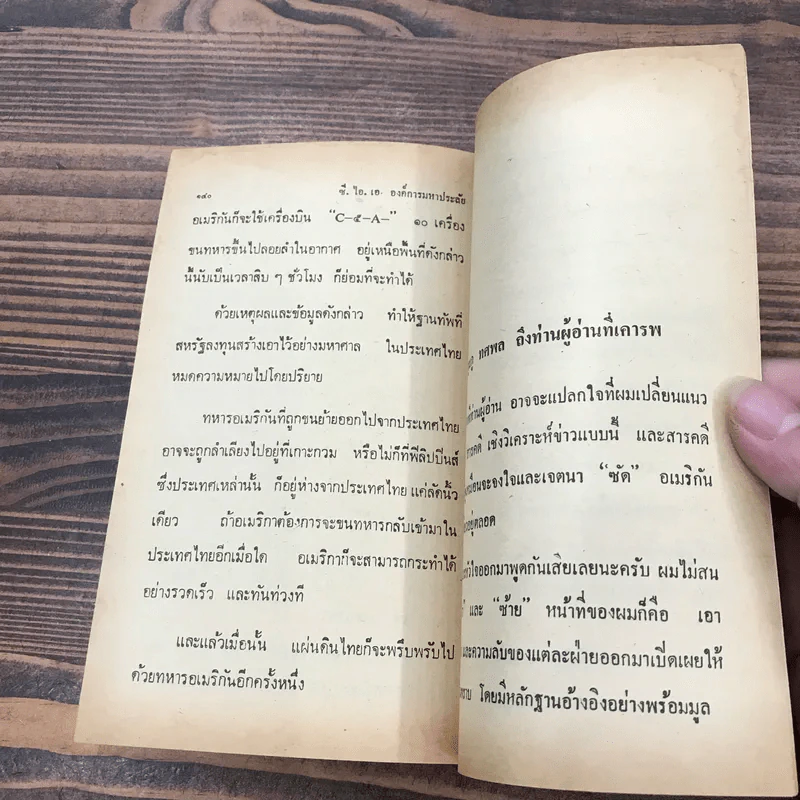 ๑๔๐ ซี. ไอ. เอ. องค์การมหาประลัย
อเมริกันก็จะใช้เครื่องบิน “C–๕–A–” ๑๐ เครื่อง
ขนทหารขึ้นไปลอยลำในอากาศ อยู่เหนือพื้นที่ดังกล่าว
นี้นับเป็นเวลาสิบ ๆ ชั่วโมง ก็ย่อมที่จะทำได้
ด้วยเหตุผลและข้อมูลดังกล่าว ทำให้ฐานทัพที่
สหรัฐลงทุนสร้างเอาไว้อย่างมหาศาล ในประเทศไทย
หมดความหมายไปโดยปริยาย
ทหารอเมริกันที่ถูกขนย้ายออกไปจากประเทศไทย
อาจจะถูกลำเลียงไปอยู่ที่เกาะกวม หรือไม่ก็ที่ฟิลิปปินส์
ซึ่งประเทศเหล่านั้น ก็อยู่ห่างจากประเทศไทย แค่ลัดนิ้ว
เดียว ถ้าอเมริกาต้องการจะขนทหารกลับเข้ามาใน
ประเทศไทยอีกเมื่อใด อเมริกาก็จะสามารถกระทำได้
อย่างรวดเร็ว และทันท่วงที
และแล้วเมื่อนั้น แผ่นดินไทยก็จะพรึบพรับไป
ด้วยทหารอเมริกันอีกครั้งหนึ่ง
ทศพล ถึงท่านผู้อ่านที่เคารพ
ท่านผู้อ่าน อาจจะแปลกใจที่ผมเปลี่ยนแนว
เชิงวิเคราะห์ข่าวแบบนี้ และสารคดี
จะจงใจและเจตนา “ซัด” อเมริกัน
อยู่ตลอด
ออกมาพูดกันเสียเลยนะครับ ผมไม่สน
และ “ซ้าย” หน้าที่ของผมก็คือ เอา
และความลับของแต่ละฝ่ายออกมาเปิดเผยให้
โดยมีหลักฐานอ้างอิงอย่างพร้อมมูล